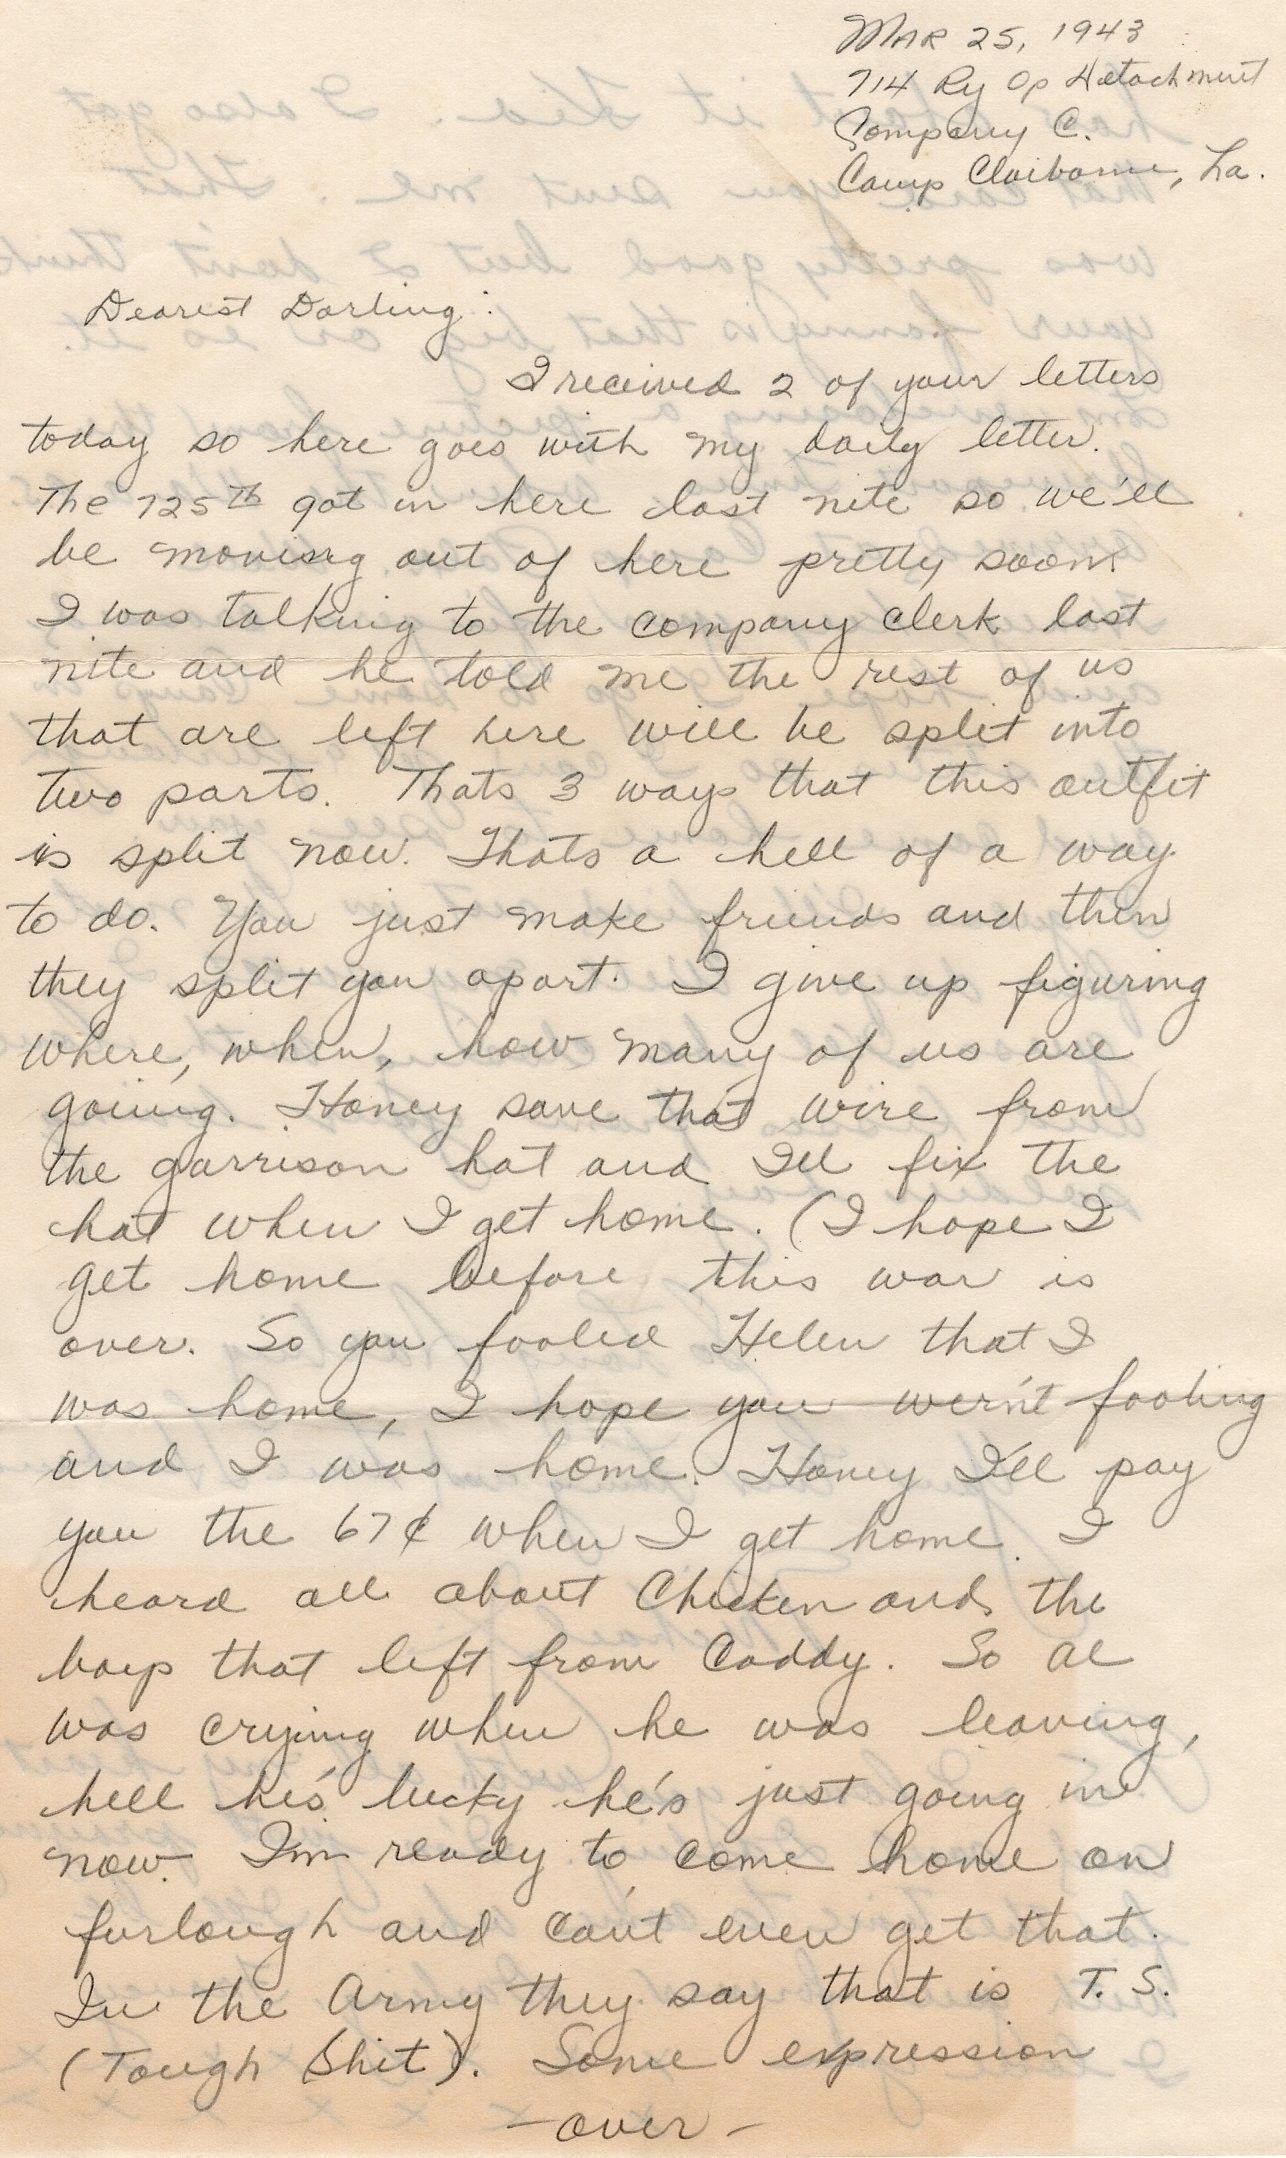 MAR 25, 1943
714 Ry Op Detachment
Company C.
Camp Claiborne, La.
Dearest Darling:
I received 2 of your letters
today so here goes with my daily letter.
The 725th got in here last nite so we'll
be moving out of here pretty soon.
I was talking to the company clerk last
nite and he told me the rest of us
that are left here will be split into
two parts. Thats 3 ways that this outfit
is split now. Thats a hell of a way
to do. You just make friends and then
they split you apart. I give up figuring
where, when, how many of us are
going. Honey save that wire from
the garrison hat and I'll fix the
hat when I get home. (I hope I
get home before this war is
over. So you fooled Helen that I
was home, I hope you wern't fooling
and I was home. Honey I'll pay
you the 67¢ when I get home. I
heard all about Chicken and the
boys that left from Caddy. So Al
was crying when he was leaving,
hell he's lucky he's just going in
now. I'm ready to come home on
furlough and can't even get that.
In the Army they say that is T. S.
(Tough Shit). Some expression
-over-